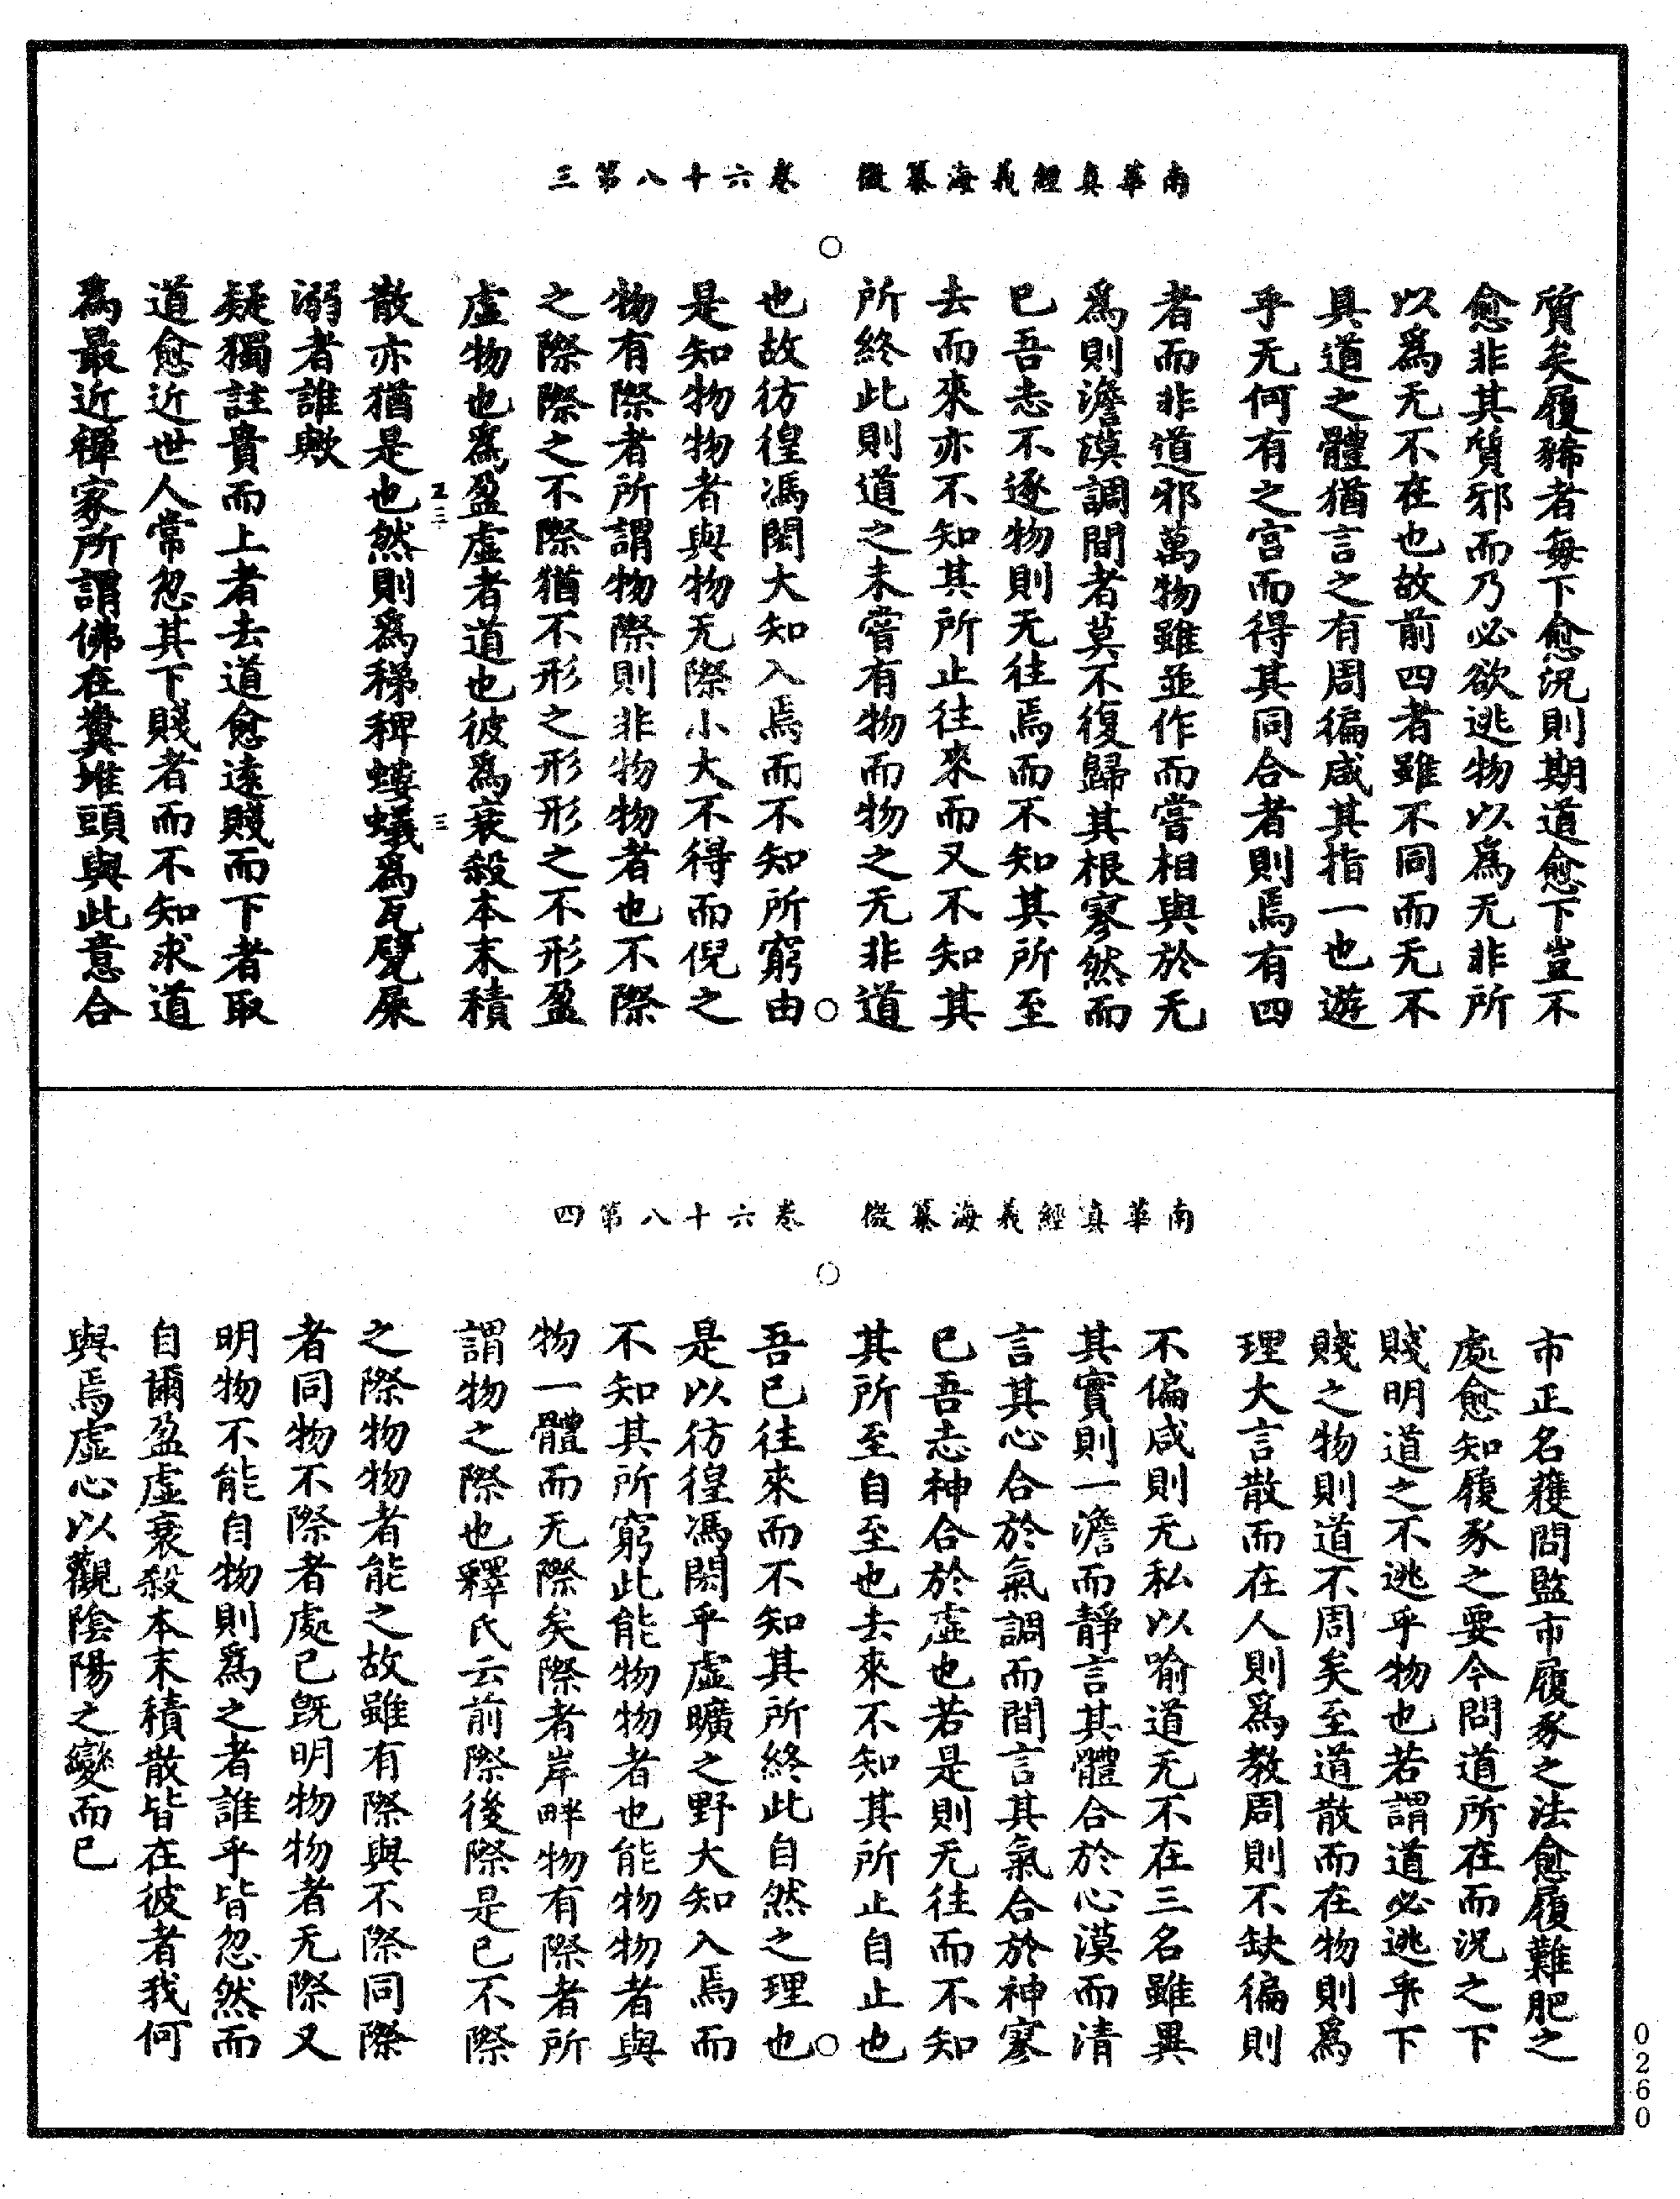 南華真經義海纂微　卷六十八第三
質矣履豨者每下愈況則期道愈下豈不
愈非其質邪而乃必欲逃物以爲无非所
以爲无不在也故前四者雖不同而无不
具道之體猶言之有周徧咸其指一也遊
乎无何有之宮而得其同合者則焉有四
者而非道邪萬物雖並作而嘗相與於无
爲則澹漠調閒者莫不復歸其根寥然而
已吾志不逐物則无往焉而不知其所至
去而來亦不知其所止往來而又不知其
所終此則道之未嘗有物而物之无非道
也故彷徨馮閎大知入焉而不知所窮由
是知物物者與物无際小大不得而倪之
物有際者所謂物際則非物物者也不際
之際際之不際猶不形之形形之不形盈
虛物也爲盈虛者道也彼爲衰殺本末積
散亦猶是也然則爲稊稗螻蟻爲瓦甓屎
溺者誰歟
疑獨註貴而上者去道愈遠賤而下者取
道愈近世人常忽其下賤者而不知求道
爲最近禪家所謂佛在糞堆頭與此意合
南華真經義海纂微　卷六十八第四
市正名獲問監市履豕之法愈履難肥之
處愈知履豕之要今問道所在而況之下
賤明道之不逃乎物也若謂道必逃乎下
賤之物則道不周矣至道散而在物則爲
理大言散而在人則爲教周則不缺徧則
不偏咸則无私以喻道无不在三名雖異
其實則一澹而靜言其體合於心漠而清
言其心合於氣調而閒言其氣合於神寥
已吾志神合於虛也若是則无往而不知
其所至自至也去來不知其所止自止也
吾已往來而不知其所終此自然之理也
是以彷徨馮閎乎虛曠之野大知入焉而
不知其所窮此能物物者也能物物者與
物一體而无際矣際者岸畔物有際者所
謂物之際也釋氏云前際後際是已不際
之際物物者能之故雖有際與不際同際
者同物不際者處已既明物物者无際又
明物不能自物則爲之者誰乎皆忽然而
自爾盈虛衰殺本末積散皆在彼者我何
與焉虛心以觀陰陽之變而已
0260